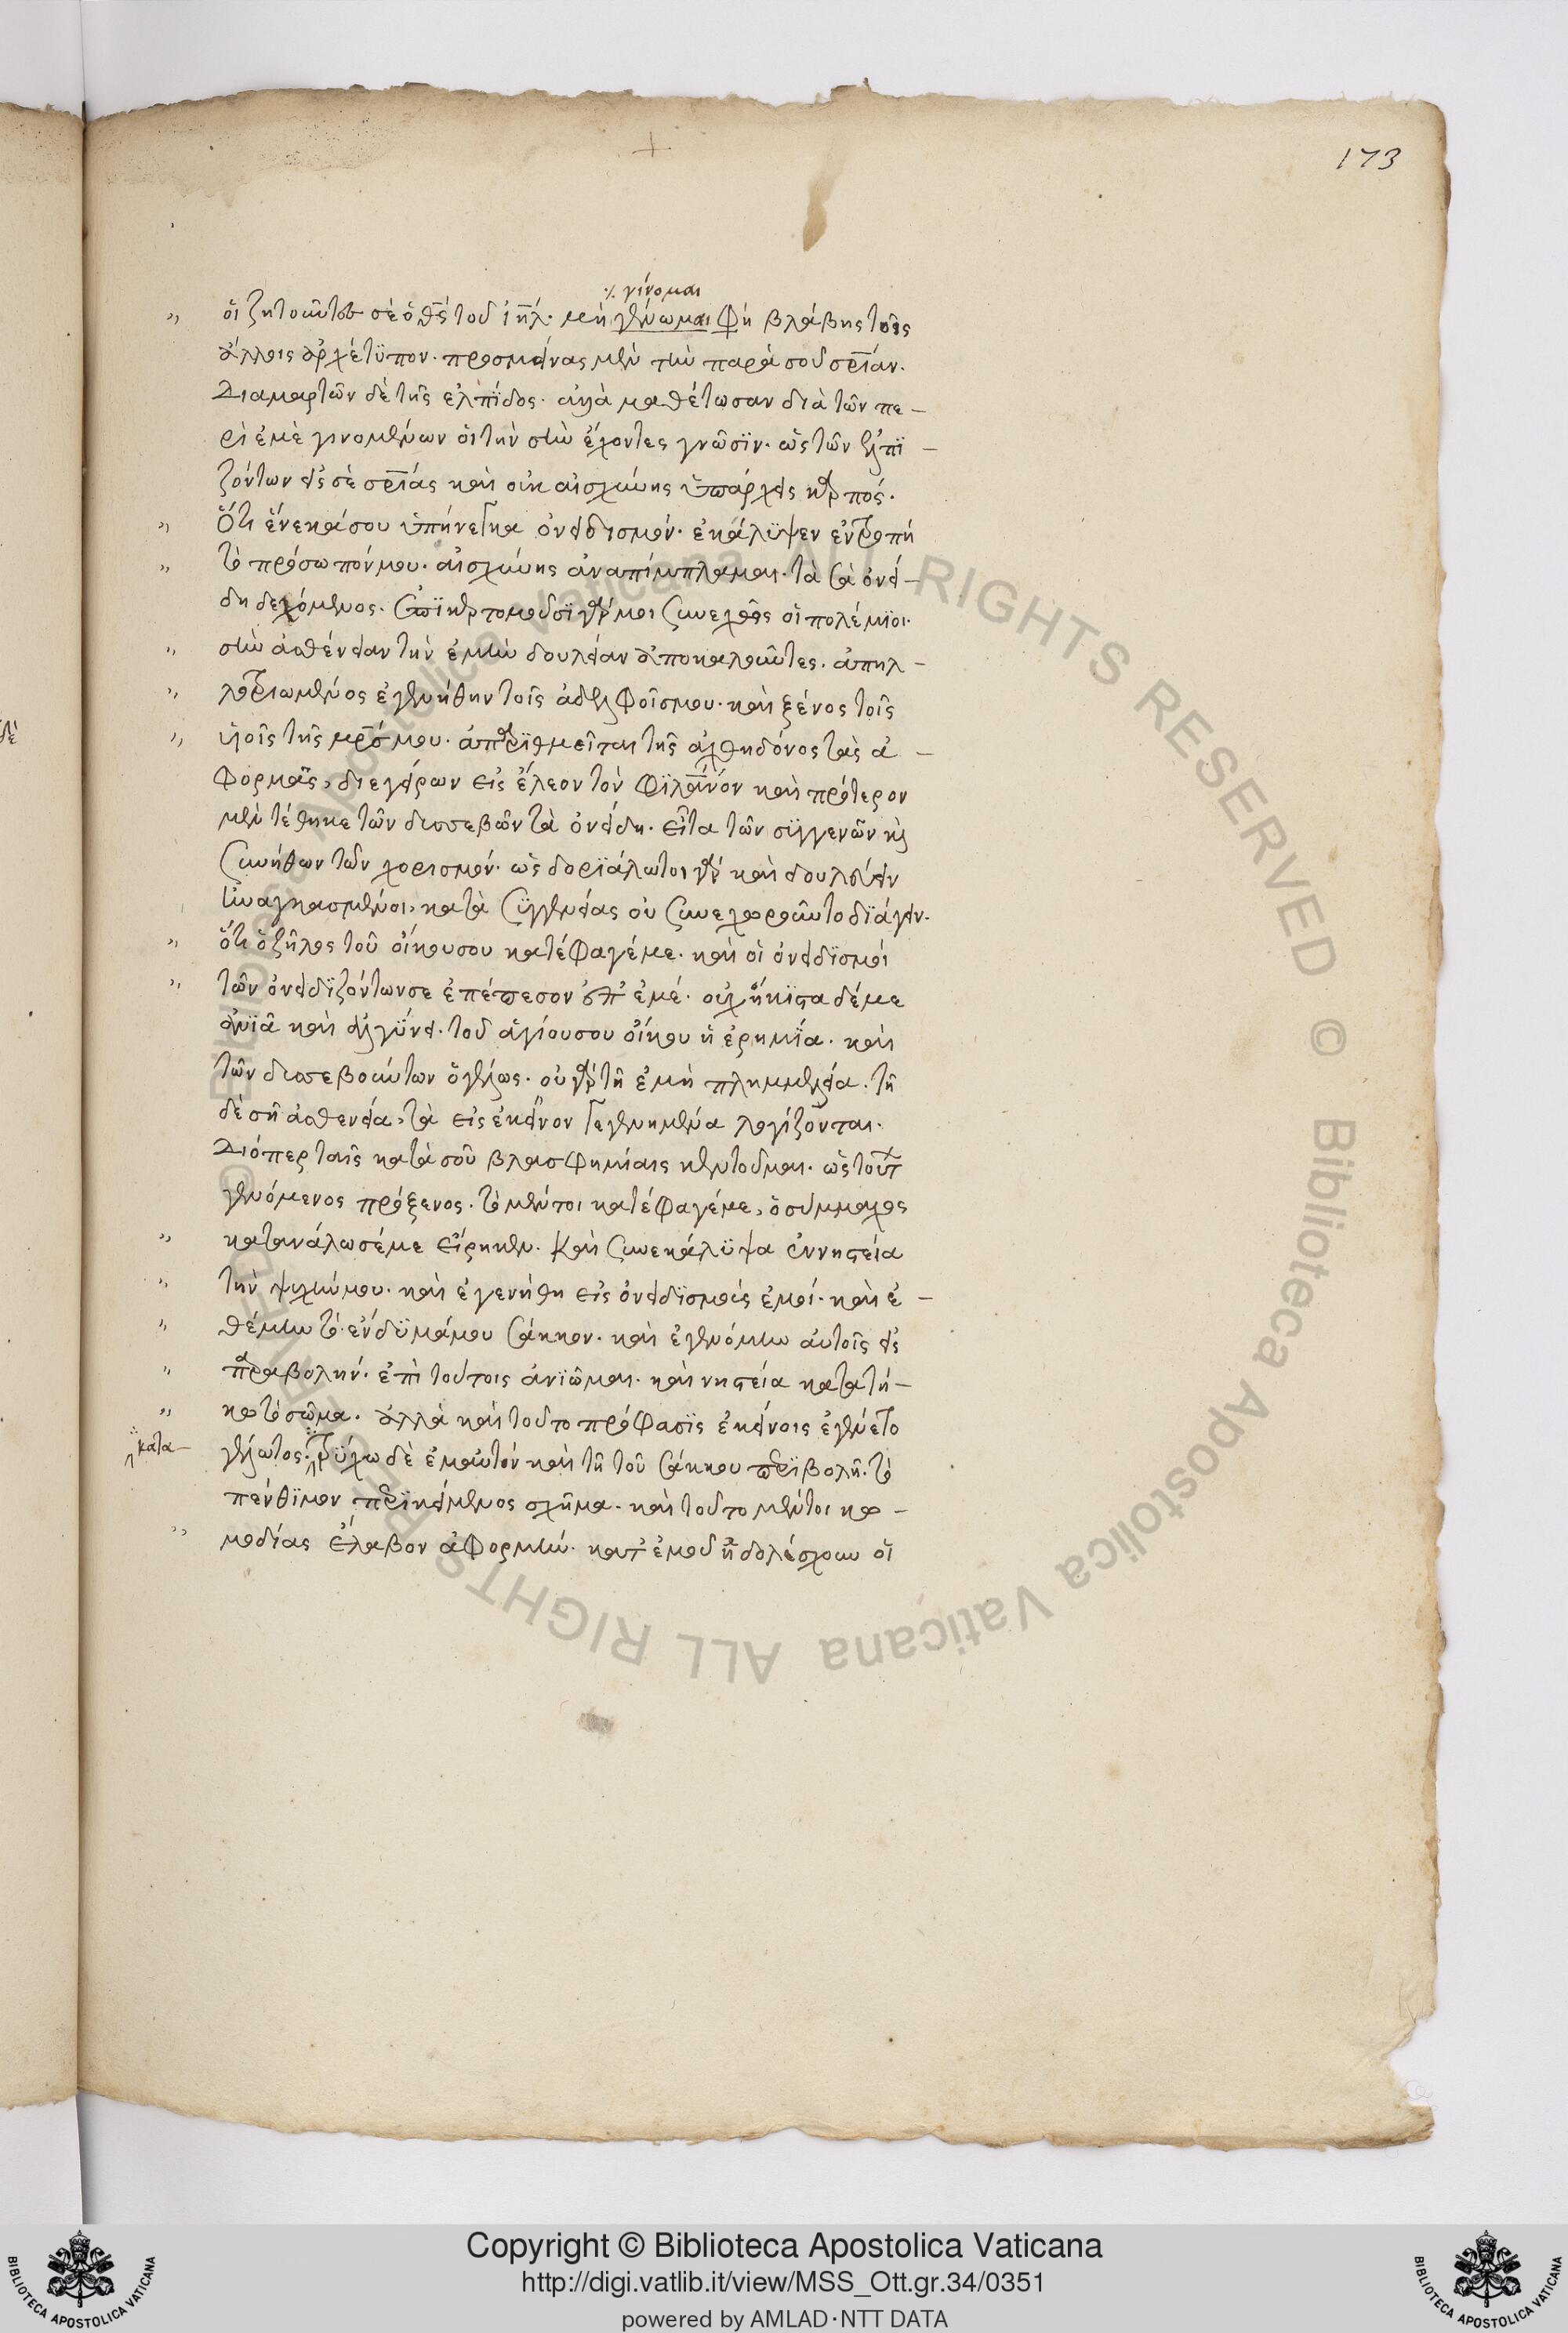 173
γίνομαι
οἱ ζητοῦντές σε ὁ θς τοῦ ιηλ. μὴ γένωμαι φη βλάβης τοῖς
ἄλλοις ἀρχέτϋπον. προσμείνας μὲν τὴν παρὰ σοῦ σρίαν.
Διαμαρτὼν δὲ τῆς ἐλπίδος. ἀλλὰ μαθέτωσαν διὰ τῶν πε-
ρὶ ἐμὲ γινομένων οἱ τὴν σὴν ἔχοντες γνῶσϊν. ὡς τῶν ἐλπϊ-
ζόντων εἰς σὲ σρίας καὶ οὐκ αἰσχύνης ὑπάρχεις καρπός.
Ὅτι ἕνεκά σου ὑπήνεγκα ὀνειδισμόν. ἐκάλϋψεν ἐντροπὴ
τὸ πρόσωπόν μου. αἰσχύνης ἀναπίμπλαμαι. τὰ σὰ ὀνεί-
δη δεχόμενος. ἐπϊκερτομοῦσϊ γάρ μοι συνεχῶς οἱ πολέμϊοι.
σὴν ἀσθένειαν τὴν ἐμὴν δουλείαν ἀποκαλοῦντες. ἀπηλ-
λοτριωμένος ἐγενήθην τοῖς ἀδελφοῖς μου. καὶ ξένος τοῖς
υἱοῖς τῆς μρς μου. ἀπαρϊθμεῖται τῆς ἀλγηδόνος τὰς ἀ-
φορμὰς, διεγείρων εἰς ἔλεον τὸν φϊλανον καὶ πρότερον
μὲν τέθηκε τῶν δυσσεβῶν τὰ ὀνείδη. εἶτα τῶν σϋγγενῶν καὶ
συνήθων τὸν χορισμόν. ὡς δορϊάλωτοι γάρ καὶ δουλεύειν
ἠναγκασμένοι, κατὰ σϋγγενείας οὐ συνεχωροῦντο δϊάγειν.
ὅτι ὁ ζῆλος τοῦ οἴκου σου κατέφαγέ με. καὶ οἱ ὀνειδϊσμοὶ
τῶν ὀνειδϊζόντων σε ἐπέπεσον ἐπ' ἐμέ. οὐχ ἥκϊστα δέ με
ἀνϊᾶ καὶ ἀλγϋνει. τοῦ ἁγίου σου οἴκου ἡ ἐρημΐα. καὶ
τῶν δυσσεβούντων ὁ γέλως. οὐ γάρ τῆ ἐμῆ πλημμελεία. τῆ
δὲ σῆ ἀσθενεία, τὰ εἰς ἐκεῖνον γεγενημένα λογίζονται.
Διόπερ ταῖς κατὰ σοῦ βλασφημίαις κεντοῦμαι. ὡς τούτ
γενόμενος πρόξενος. τὸ μέντοι κατέφαγέ με, ὁ σύμμαχος
κατανάλωσέ με εἴρηκεν. Καὶ συνεκάλϋψα ἐν νηστεία
τὴν ψυχήν μου. καὶ ἐγενήθη εἰς ὀνειδϊσμοὺς ἐμοί. καὶ ἐ-
θέμην τὸ ἔνδϋμά μου σάκκον. καὶ ἐγενόμην αὐτοῖς εἰς
παραβολήν. ἐπὶ τούτοις ἀνϊῶμαι. καὶ νηστεία κατατή-
κω τὸ σῶμα. ἀλλὰ καὶ τοῦτο πρόφασϊς ἐκείνοις ἐγένετο
κατα-
γέλωτος. τρϋχω δὲ ἐμαυτὸν καὶ τῆ τοῦ σάκκου περϊβολῆ. τὸ
πένθϊμον περϊκείμενος σχῆμα. καὶ τοῦτο μέντοι κω-
μωδίας ἔλαβον ἀφορμήν. κατ' ἐμοῦ ἠδολέσχουν οἱ
Copyright © Biblioteca Apostolica Vaticana
http://digi.vatlib.it/view/MSS_Ott.gr.34/0351
powered by AMLAD·NTT DATA